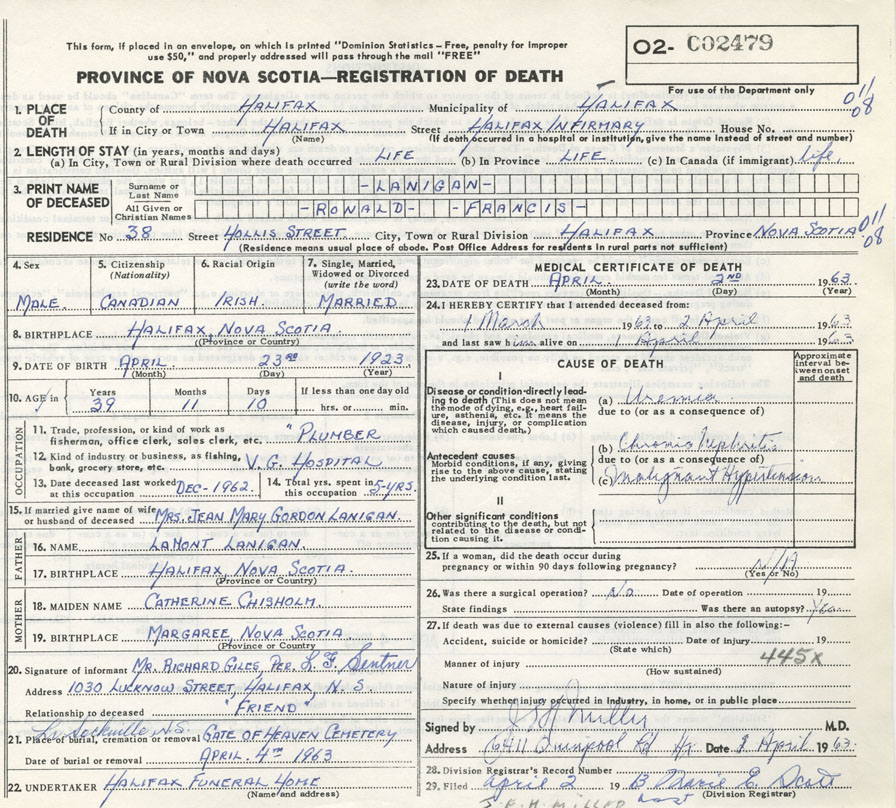 This form, if placed in an envelope, on which is printed "Dominion Statistics – Free, penalty for improper
use $50," and properly addressed will pass through the mail "FREE"
O2- C02479
PROVINCE OF NOVA SCOTIA—REGISTRATION OF DEATH
For use of the Department only
1. PLACE OF DEATH
County of HALIFAX Municipality of HALIFAX 011 08
If in City or Town HALIFAX Street HALIFAX INFIRMARY House No.
(Name) (If death occurred in a hospital or institution, give the name instead of street and number)
2. LENGTH OF STAY (in years, months and days)
(a) In City, Town or Rural Division where death occurred LIFE (b) In Province LIFE. (c) In Canada (if immigrant) life
3. PRINT NAME OF DECEASED
Surname or Last Name -LANIGAN-
All Given or Christian Names -RONALD- -FRANCIS-
RESIDENCE No 38 Street HOLLIS STREET City, Town or Rural Division HALIFAX Province NOVA SCOTIA 011 08
(Residence means usual place of abode. Post Office Address for residents in rural parts not sufficient)
4. Sex MALE
5. Citizenship (Nationality) CANADIAN
6. Racial Origin IRISH.
7. Single, Married, Widowed or Divorced (write the word) MARRIED
8. BIRTHPLACE HALIFAX, NOVA SCOTIA.
(Province or Country)
9. DATE OF BIRTH APRIL 23RD 1923
(Month) (Day) (Year)
10. AGE in Years 39 Months 11 Days 10 If less than one day old hrs. or min.
OCCUPATION
11. Trade, profession, or kind of work as fisherman, office clerk, sales clerk, etc. "PLUMBER
12. Kind of industry or business, as fishing, bank, grocery store, etc. V. G. HOSPITAL
13. Date deceased last worked at this occupation DEC-1962.
14. Total yrs. spent in this occupation 5-YRS.
15. If married give name of wife or husband of deceased MRS. JEAN MARY GORDON LANIGAN.
FATHER
16. NAME LAMONT LANIGAN.
17. BIRTHPLACE HALIFAX, NOVA SCOTIA.
(Province or Country)
MOTHER
18. MAIDEN NAME CATHERINE CHISHOLM.
19. BIRTHPLACE MARGAREE, NOVA SCOTIA
(Province or Country)
20. Signature of informant MR. RICHARD GILES, PER. L. F. Sentner
Address 1030 LUCKNOW STREET, HALIFAX, N. S.
Relationship to deceased "FRIEND"
Sackville N.S.
21. Place of burial, cremation or removal GATE OF HEAVEN CEMETERY
Date of burial or removal APRIL. 4TH 1963
22. UNDERTAKER HALIFAX FUNERAL HOME
(Name and address)
MEDICAL CERTIFICATE OF DEATH
23. DATE OF DEATH APRIL 2ND 1963
(Month) (Day) (Year)
24. I HEREBY CERTIFY that I attended deceased from:
1 March 1963 to 2 April 1963
and last saw him alive on 1 April 1963
CAUSE OF DEATH
Approximate interval between onset and death
I
Disease or condition directly leading to death (This does not mean the mode of dying, e.g., heart failure, asthenia, etc. It means the disease, injury, or complication which caused death.)
(a) Uremia
due to (or as a consequence of)
Antecedent causes
Morbid conditions, if any, giving rise to the above cause, stating the underlying condition last.
(b) Chronic Nephritis
due to (or as a consequence of)
(c) Malignant Hypertension
II
Other significant conditions
contributing to the death, but not related to the disease or condition causing it.
25. If a woman, did the death occur during
pregnancy or within 90 days following pregnancy? N/A
(Yes or No)
26. Was there a surgical operation? No Date of operation 19
State findings Was there an autopsy? Yes
27. If death was due to external causes (violence) fill in also the following:-
Accident, suicide or homicide? Date of injury 19
(State which) 445X
Manner of injury
(How sustained)
Nature of injury
Specify whether injury occurred in Industry, in home, or in public place
Signed by Miller M.D.
Address 6411 Quinpool Rd Hx. Date 2 April 1963
28. Division Registrar's Record Number
29. Filed April 2 19 Marie E. Scott
(Division Registrar)
MILLER